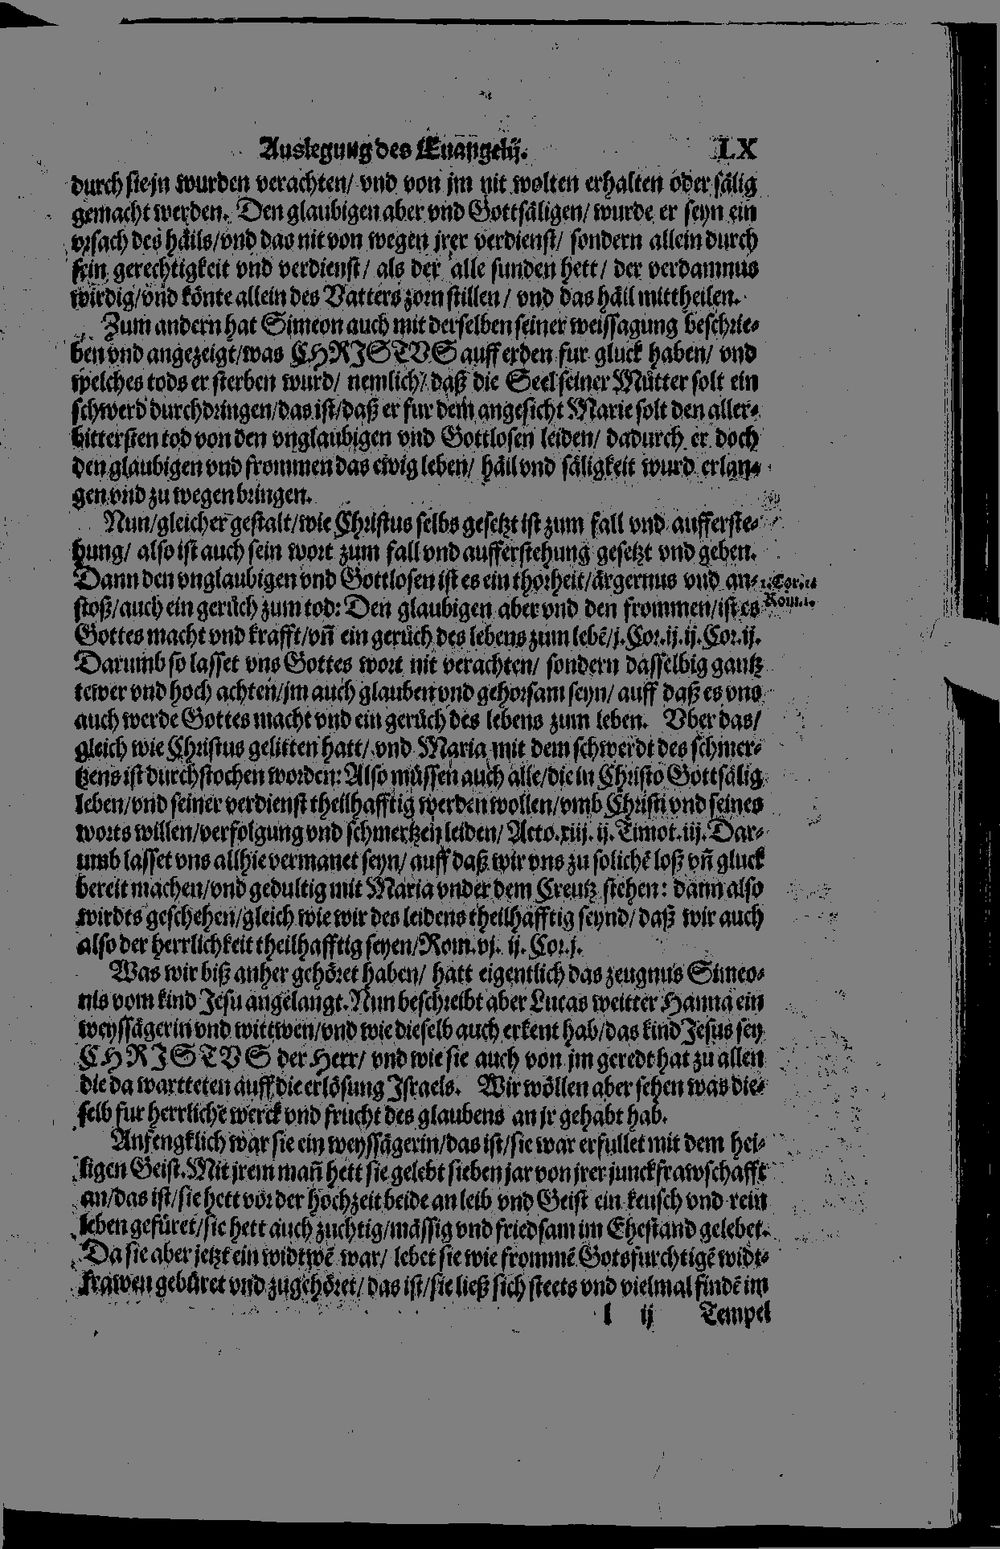 Auslegung des Euangelij. LX
durch sie jn wurden verachten/ vnd von jm nit wolten erhalten oder sälig
gemacht werden. Den glaubigen aber vnd Gottsäligen/ wurde er seyn ein
vrsach des häils/ vnd das nit von wegen jrer verdienst/ sondern allein durch
sein gerechtigkeit vnd verdienst/ als der alle sunden hett/ der verdamnus
wirdig/ vnd könte allein des Vatters zorn stillen/ vnd das häil mittheilen.
Zum andern hat Simeon auch mit derselben seiner weissagung beschrie-
ben vnd angezeigt/ was CHRISTVS auff erden fur gluck haben/ vnd
welches tods er sterben wurd/ nemlich/ daß die Seel seiner Mutter solt ein
schwerd durchdringen/ das ist/ daß er fur dem angesicht Marie solt den aller-
bittersten tod von den vnglaubigen vnd Gottlosen leiden/ dadurch er doch
den glaubigen vnd frommen das ewig leben/ häil vnd säligkeit wurd erlan-
gen vnd zu wegen bringen.
Nun/ gleicher gestalt/ wie Christus selbs gesetzt ist zum fall vnd aufferste-
hung/ also ist auch sein wort zum fall vnd aufferstehung gesetzt vnd geben.
Dann den vnglaubigen vnd Gottlosen ist es ein thorheit/ ärgernus vnd an-
stoß/ auch ein gerüch zum tod: Den glaubigen aber vnd den frommen/ ist es
Gottes macht vnd krafft/ vñ ein gerüch des lebens zum lebē/ j. Cor. ij. ij. Cor. ij.
Darumb so lasset vns Gottes wort nit verachten/ sondern dasselbig gantz
tewer vnd hoch achten/ jm auch glauben vnd gehorsam seyn/ auff daß es vns
auch werde Gottes macht vnd ein gerüch des lebens zum leben. Vber das/
gleich wie Christus gelitten hatt/ vnd Maria mit dem schwerdt des schmer-
tzens ist durchstochen worden: Also müssen auch alle/ die in Christo Gottsälig
leben/ vnd seiner verdienst theilhafftig werden wollen/ vmb Christi vnd seines
worts willen/ verfolgung vnd schmertzen leiden/ Acto. xiij. ij. Timot. iij. Dar-
umb lasset vns allhie vermanet seyn/ auff daß wir vns zu solichē loß vñ gluck
bereit machen/ vnd gedultig mit Maria vnder dem Creutz stehen: dann also
wirdts geschehen/ gleich wie wir des leidens theilhafftig seynd/ daß wir auch
also der herrlichkeit theilhafftig seyen/ Rom. vj. ij. Cor. j.
Was wir biß anher gehöret haben/ hatt eigentlich das zeugnus Simeo-
nis vom kind Jesu angelangt. Nun beschreibt aber Lucas weitter Hanna ein
weyssägerin vnd wittwen/ vnd wie dieselb auch erkent hab/ das kind Jesus sey
CHRISTVS der Herr/ vnd wie sie auch von jm geredt hat zu allen
die da wartteten auff die erlösung Israels. Wir wöllen aber sehen was die-
selb fur herrliche werck vnd frucht des glaubens an jr gehabt hab.
Anfengklich war sie ein weyssägerin/ das ist/ sie war erfullet mit dem hei-
ligen Geist. Mit jrem mañ hett sie gelebt sieben jar von jrer junckfrawschafft
an/ das ist/ sie hett vor der hochzeit beide an leib vnd Geist ein keusch vnd rein
leben gefüret/ sie hett auch zuchtig/ mässig vnd friedsam im Ehestand gelebet.
Da sie aber jetzt ein widtwē war/ lebet sie wie frommē Gotsfurchtigē widt-
frawen gebüret vnd zugehöret/ das ist/ sie ließ sich steets vnd vielmal findē im
l ij Tempel
Rom. i.